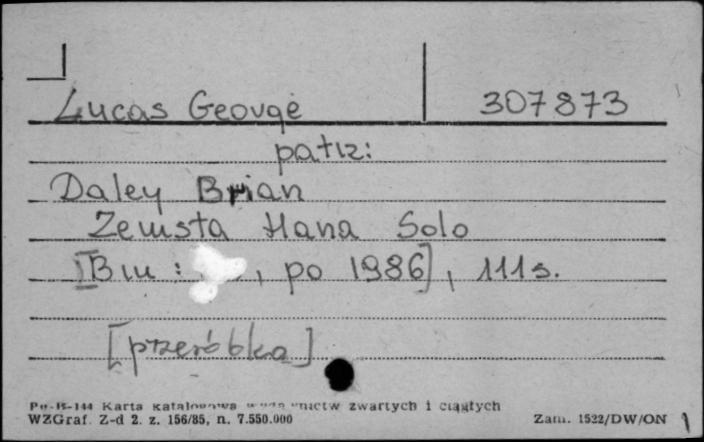 Lucas George 307873
patrz:
Daley Brian
Zemsta Hana Solo
[B m : , po 1986], 111 s.
[przeróbka]
Pu-B-144 Karta katalogowa zwartych i ciągłych
WZGraf. Z-d 2. z. 156/85, n. 7.550.000 Zam. 1522/DW/ON 1